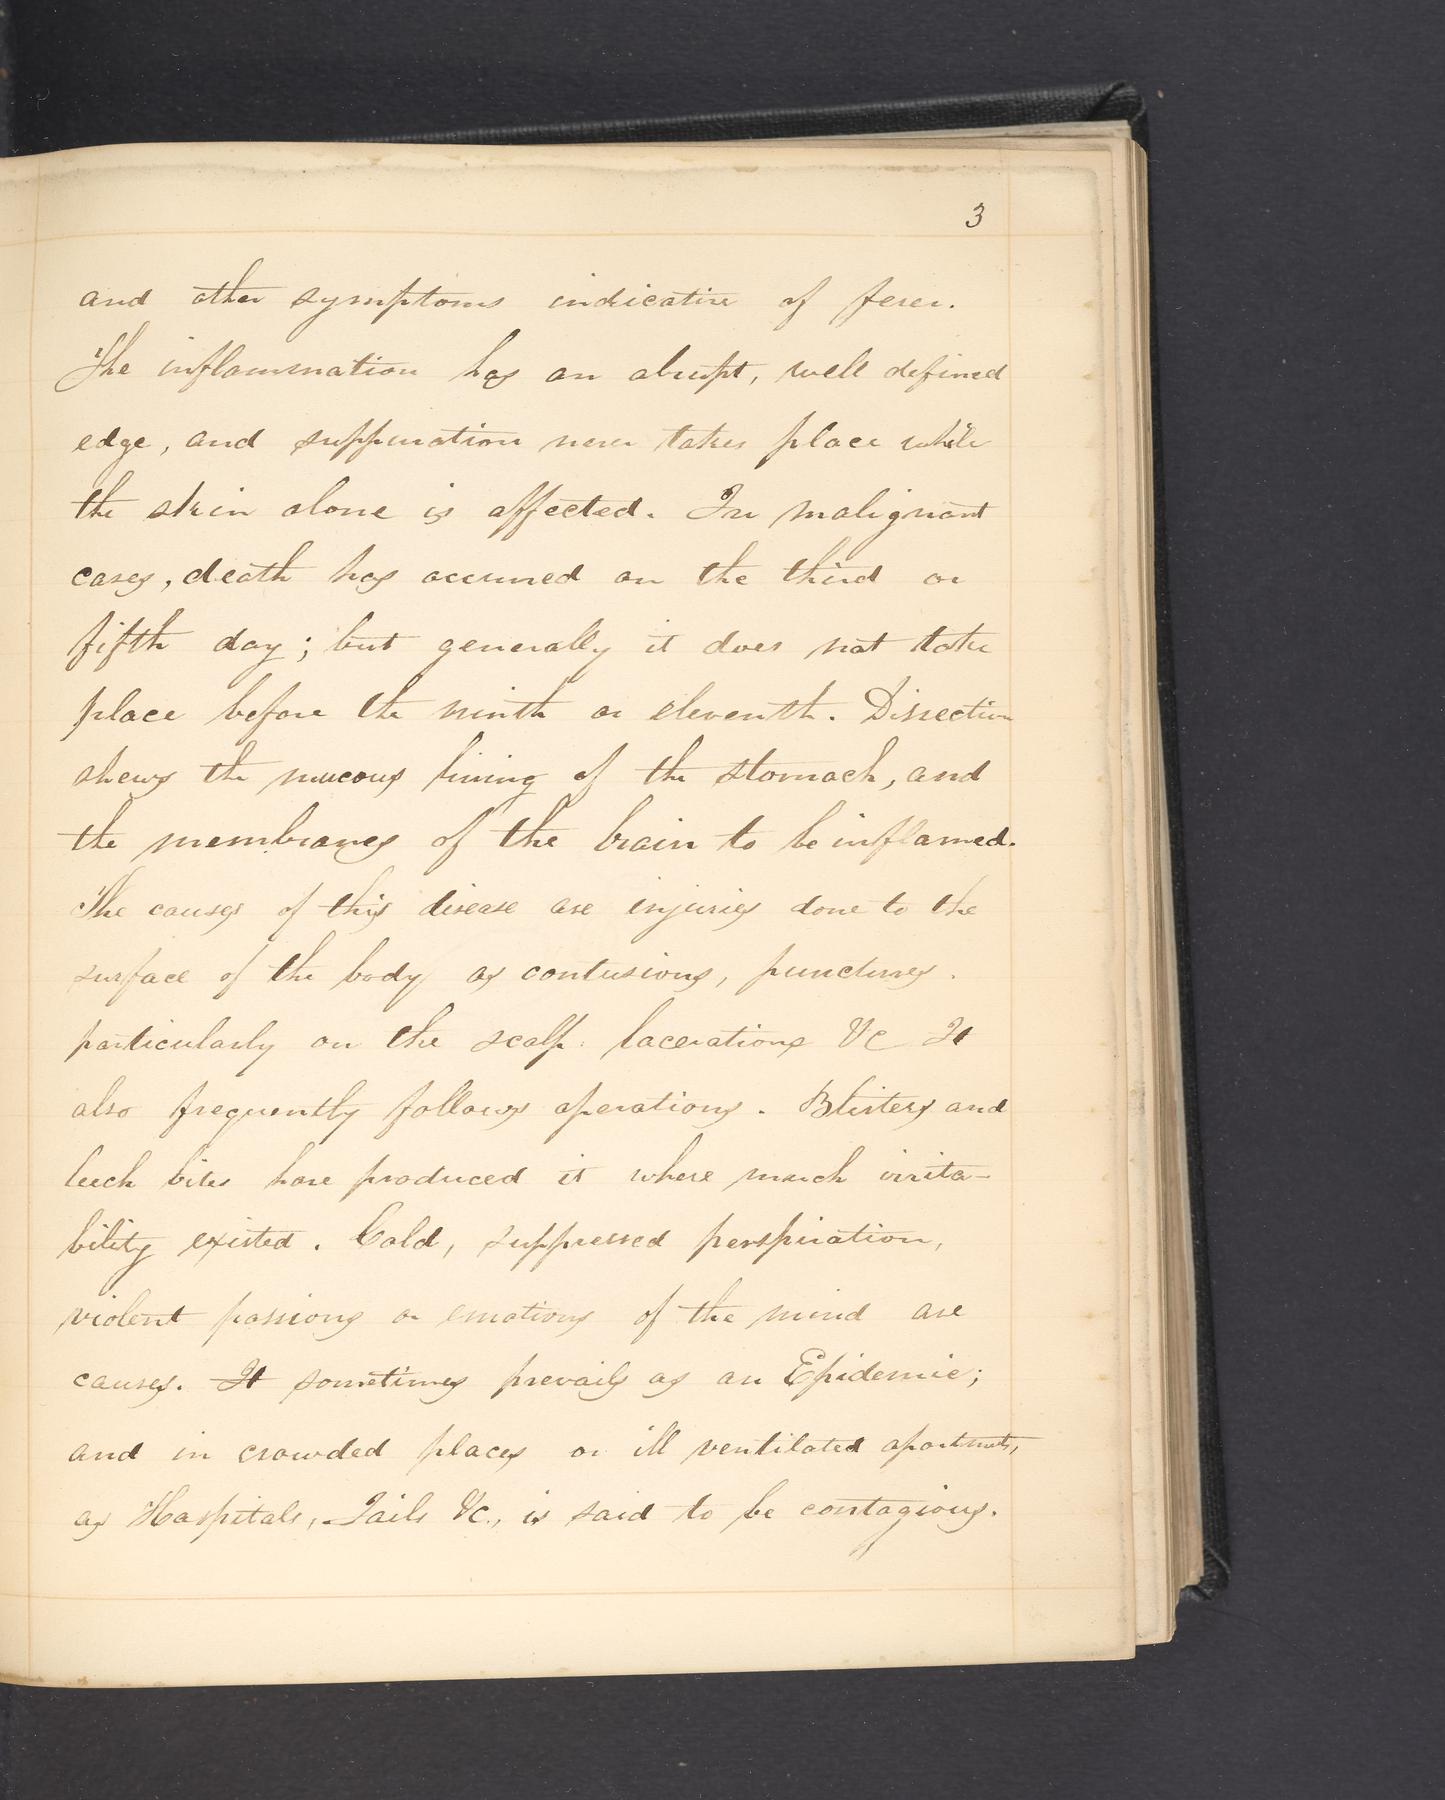 3
and other symptoms indicative of fever.
The inflammation has an abrupt, well defined
edge, and suppuration never takes place while
the skin alone is affected. In malignant
cases, death has occurred on the third or
fifth day; but generally it does not take
place before the ninth or eleventh. Dissection
shews the mucous lining of the stomach, and
the membranes of the brain to be inflamed.
The causes of this disease are injuries done to the
surface of the body as contusions, punctures.
particularly on the scalp. lacerations &c It
also frequently follows operations. Blisters and
leech bites have produced it where much irrita-
bility existed. Cold, suppressed perspiration,
violent passions or emotions of the mind are
causes. It sometimes prevails as an Epidemic;
and in crowded places or ill ventilated apartments,
as Hospitals, Jails &c., is said to be contagious.